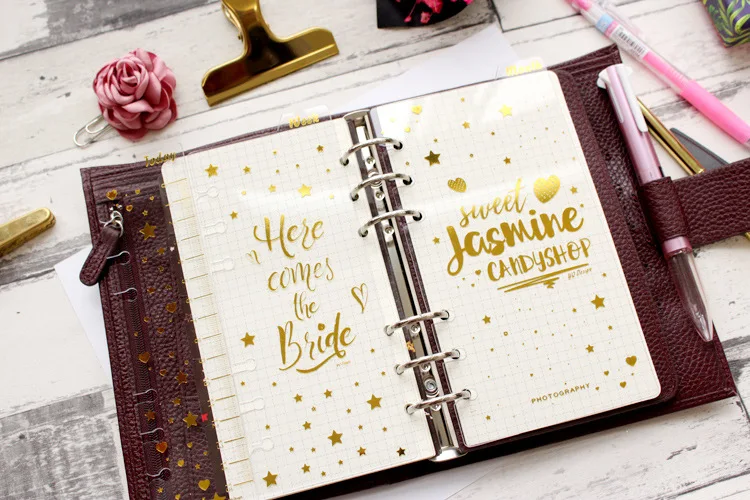 Today
Week
Here
comes
the
Bride
sweet
Jasmine
CANDYSHOP
PHOTOGRAPHY